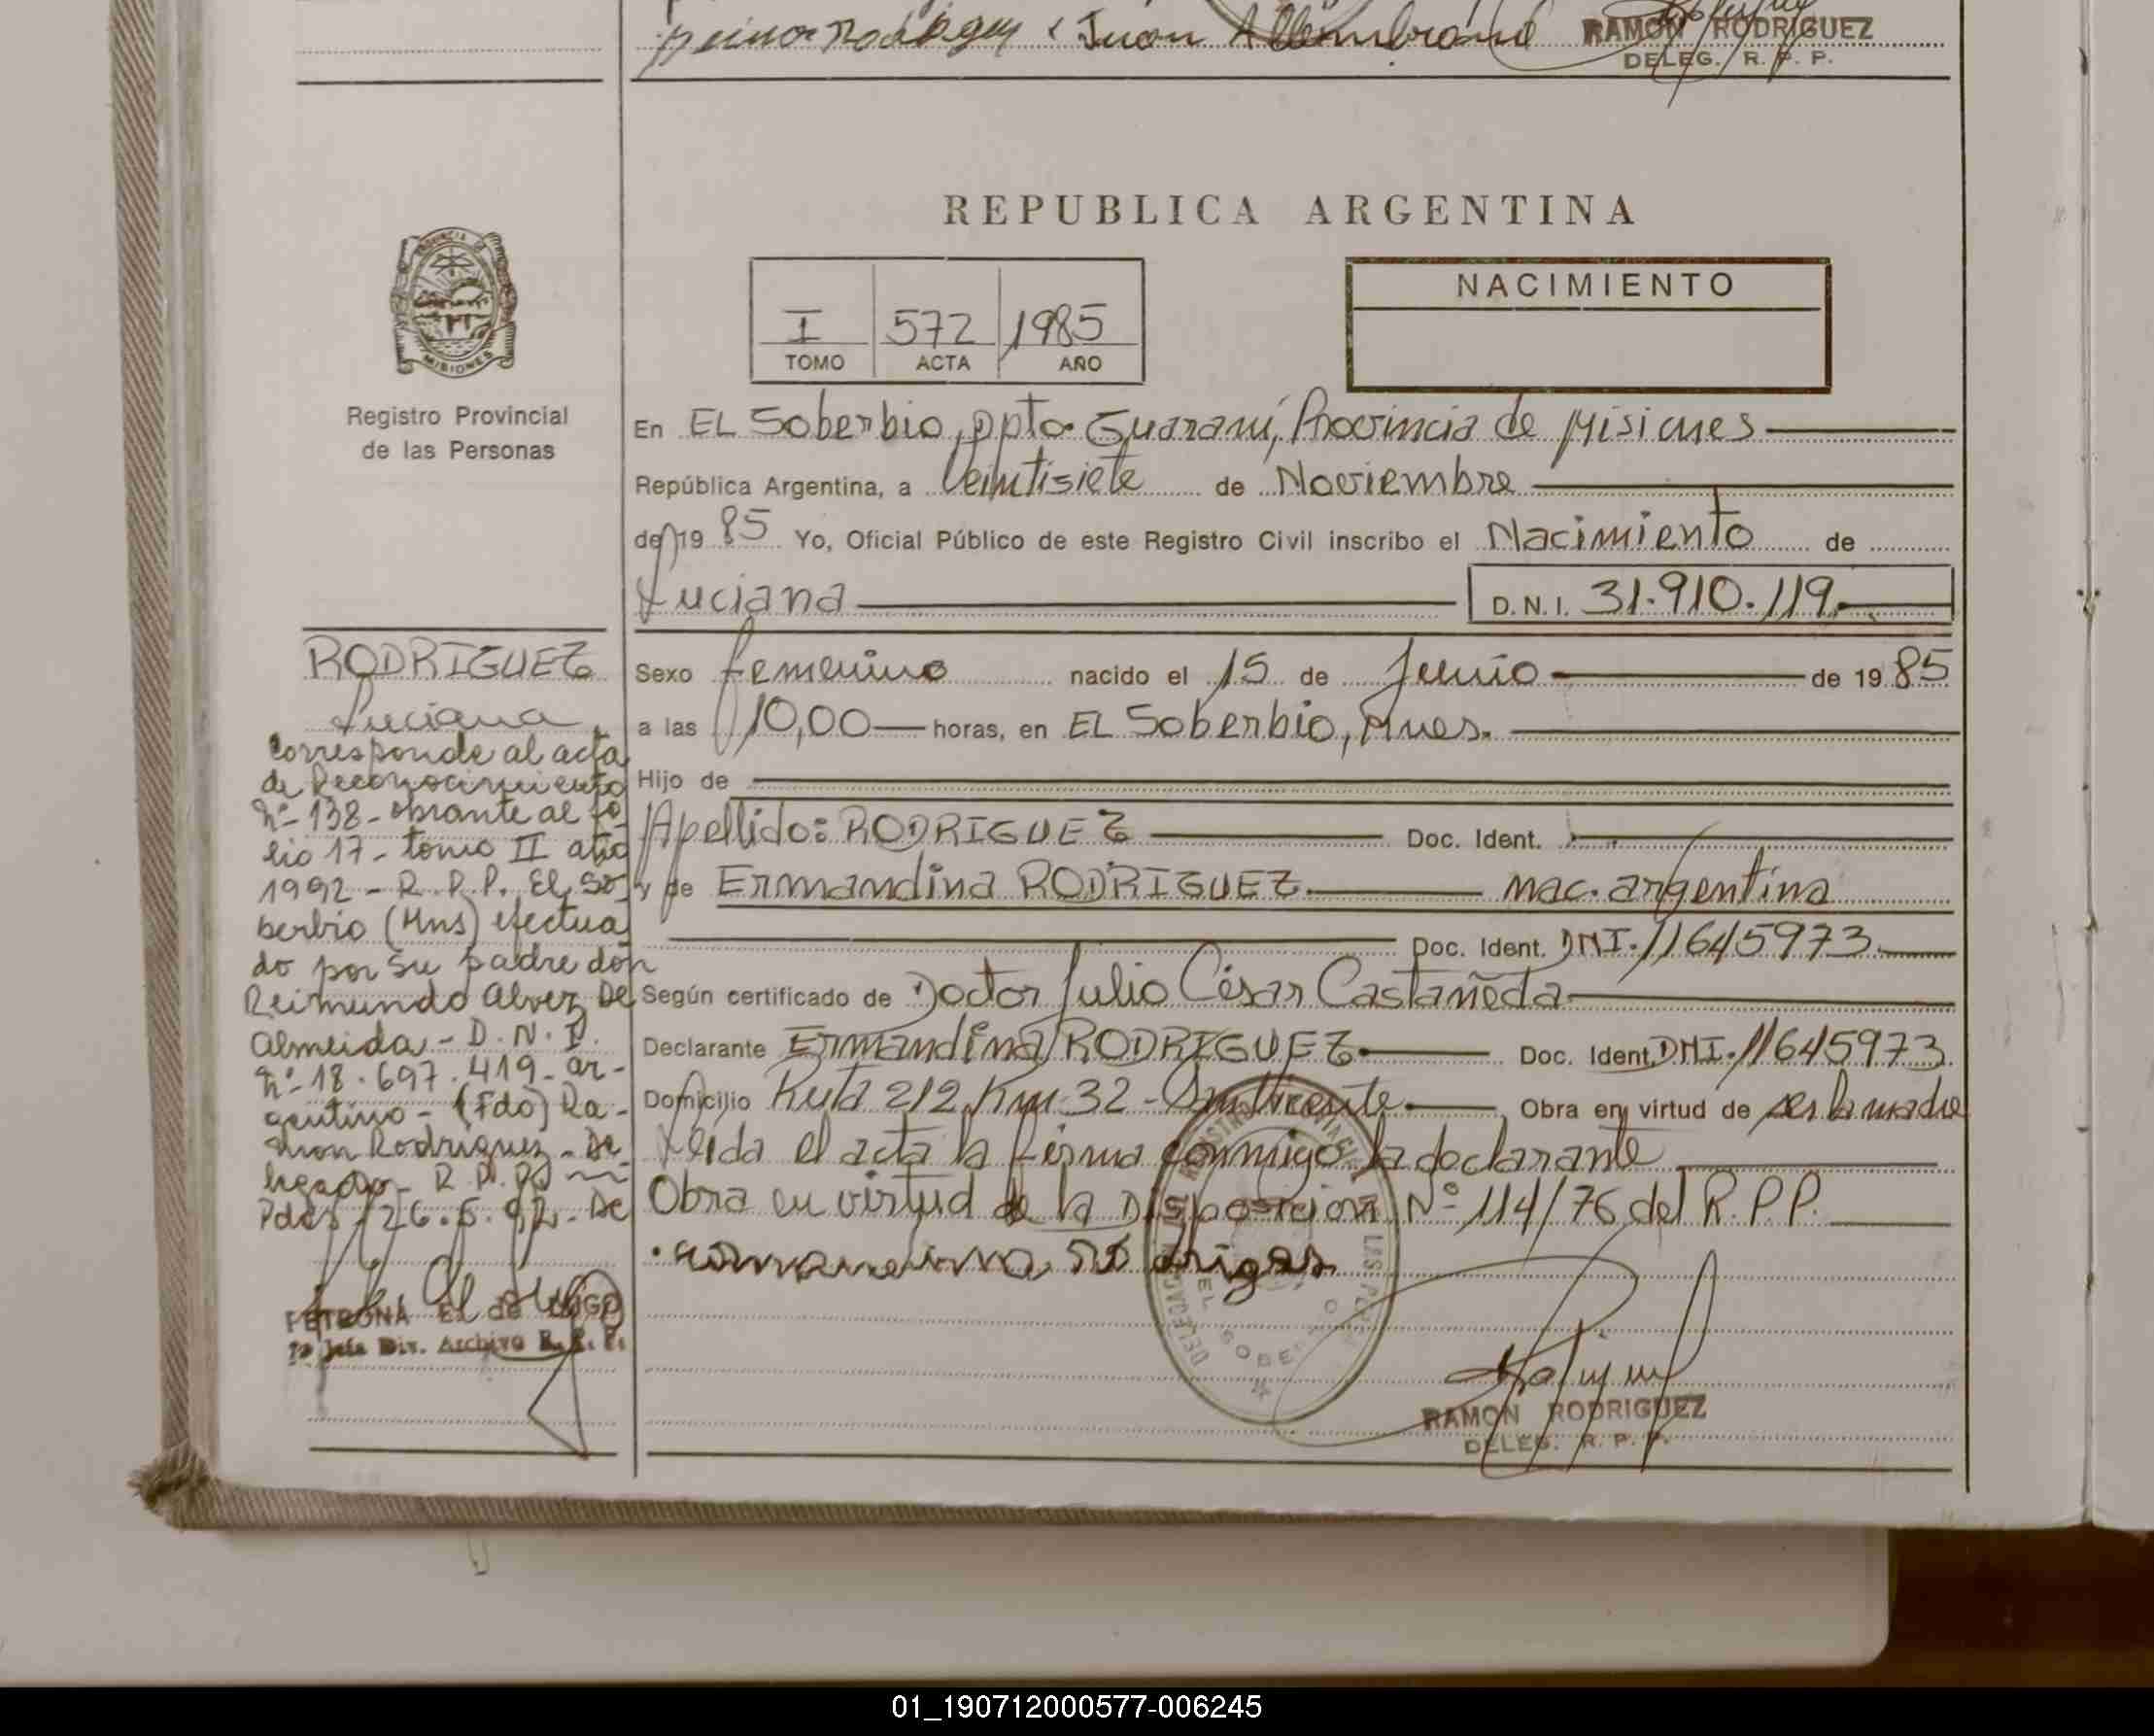 Juan
RAMON RODRIGUEZ
DELEG. R. P. P.
REPUBLICA ARGENTINA
PROVINCIA DE
MISIONES
Registro Provincial
de las Personas
I 572 1985
TOMO ACTA AÑO
NACIMIENTO
En EL Soberbio, Dpto Guaraní, Provincia de Misiones
República Argentina, a Veintisiete de Noviembre
de 19 85 Yo, Oficial Público de este Registro Civil inscribo el Nacimiento de
Luciana D.N.I. 31.910.119.
Sexo femenino nacido el 15 de Junio de 19 85
a las 10,00 horas, en EL Soberbio, Mnes.
Hijo de
Apellido: RODRIGUEZ Doc. Ident.
y de Ermandina RODRIGUEZ. nac. argentina
Doc. Ident. DNI. 11645973.
Según certificado de Doctor Julio César Castañeda
Declarante Ermandina RODRIGUEZ Doc. Ident. DNI. 11645973
Domicilio Ruta 212 Km 32 - San Vicente. Obra en virtud de ser la madre
Leída el acta la firma conmigo la declarante
Obra en virtud de la Disposicion Nº 114/76 del R.P.P.
RAMON RODRIGUEZ
DELEG. R. P. P.
RODRIGUEZ
Luciana
Corresponde al acta
de Reconocimiento
Nº 138 - obrante al fo
lio 17 - tomo II año
1992 - R.P.P. El So
berbio (Mns) efectua
do por su padre don
Reimundo Alvez De
Almeida - D.N.I.
Nº 18.697.419 - ar-
gentino - (Fdo) Ra-
mon Rodriguez - De
legado - R.P.P.
Pdas - 26.5.92. - De
PETRONA El de LUGO
Jefa Div. Archivo R. P. P.
01_190712000577-006245